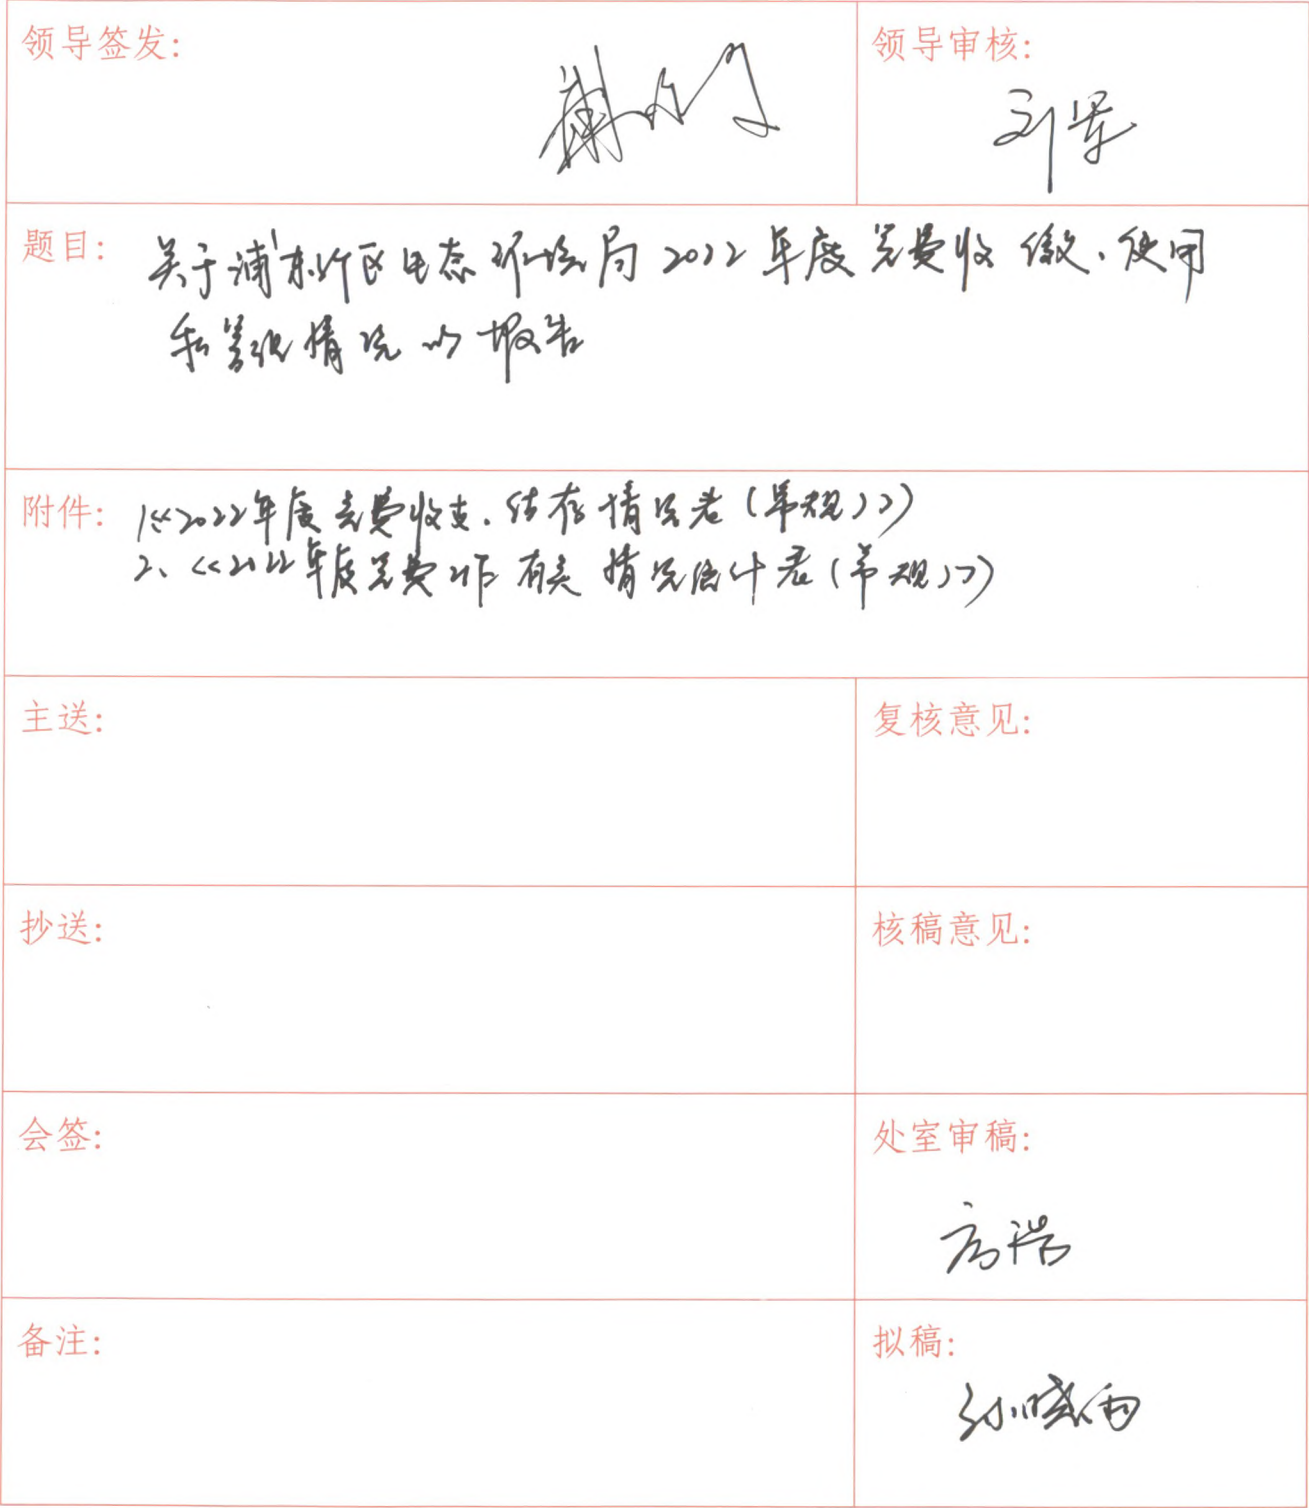 领导签发:
领导审核:
刘军
题目: 关于浦东新区生态环境局2022年度党费收缴、使用
和管理情况的报告
附件: 1、《2022年度党费收支、结存情况表（常规）》
2、《2022年度党费工作有关情况统计表（常规）》
主送:
复核意见:
抄送:
核稿意见:
会签:
处室审稿:
方浩
备注:
拟稿:
孙晓雨